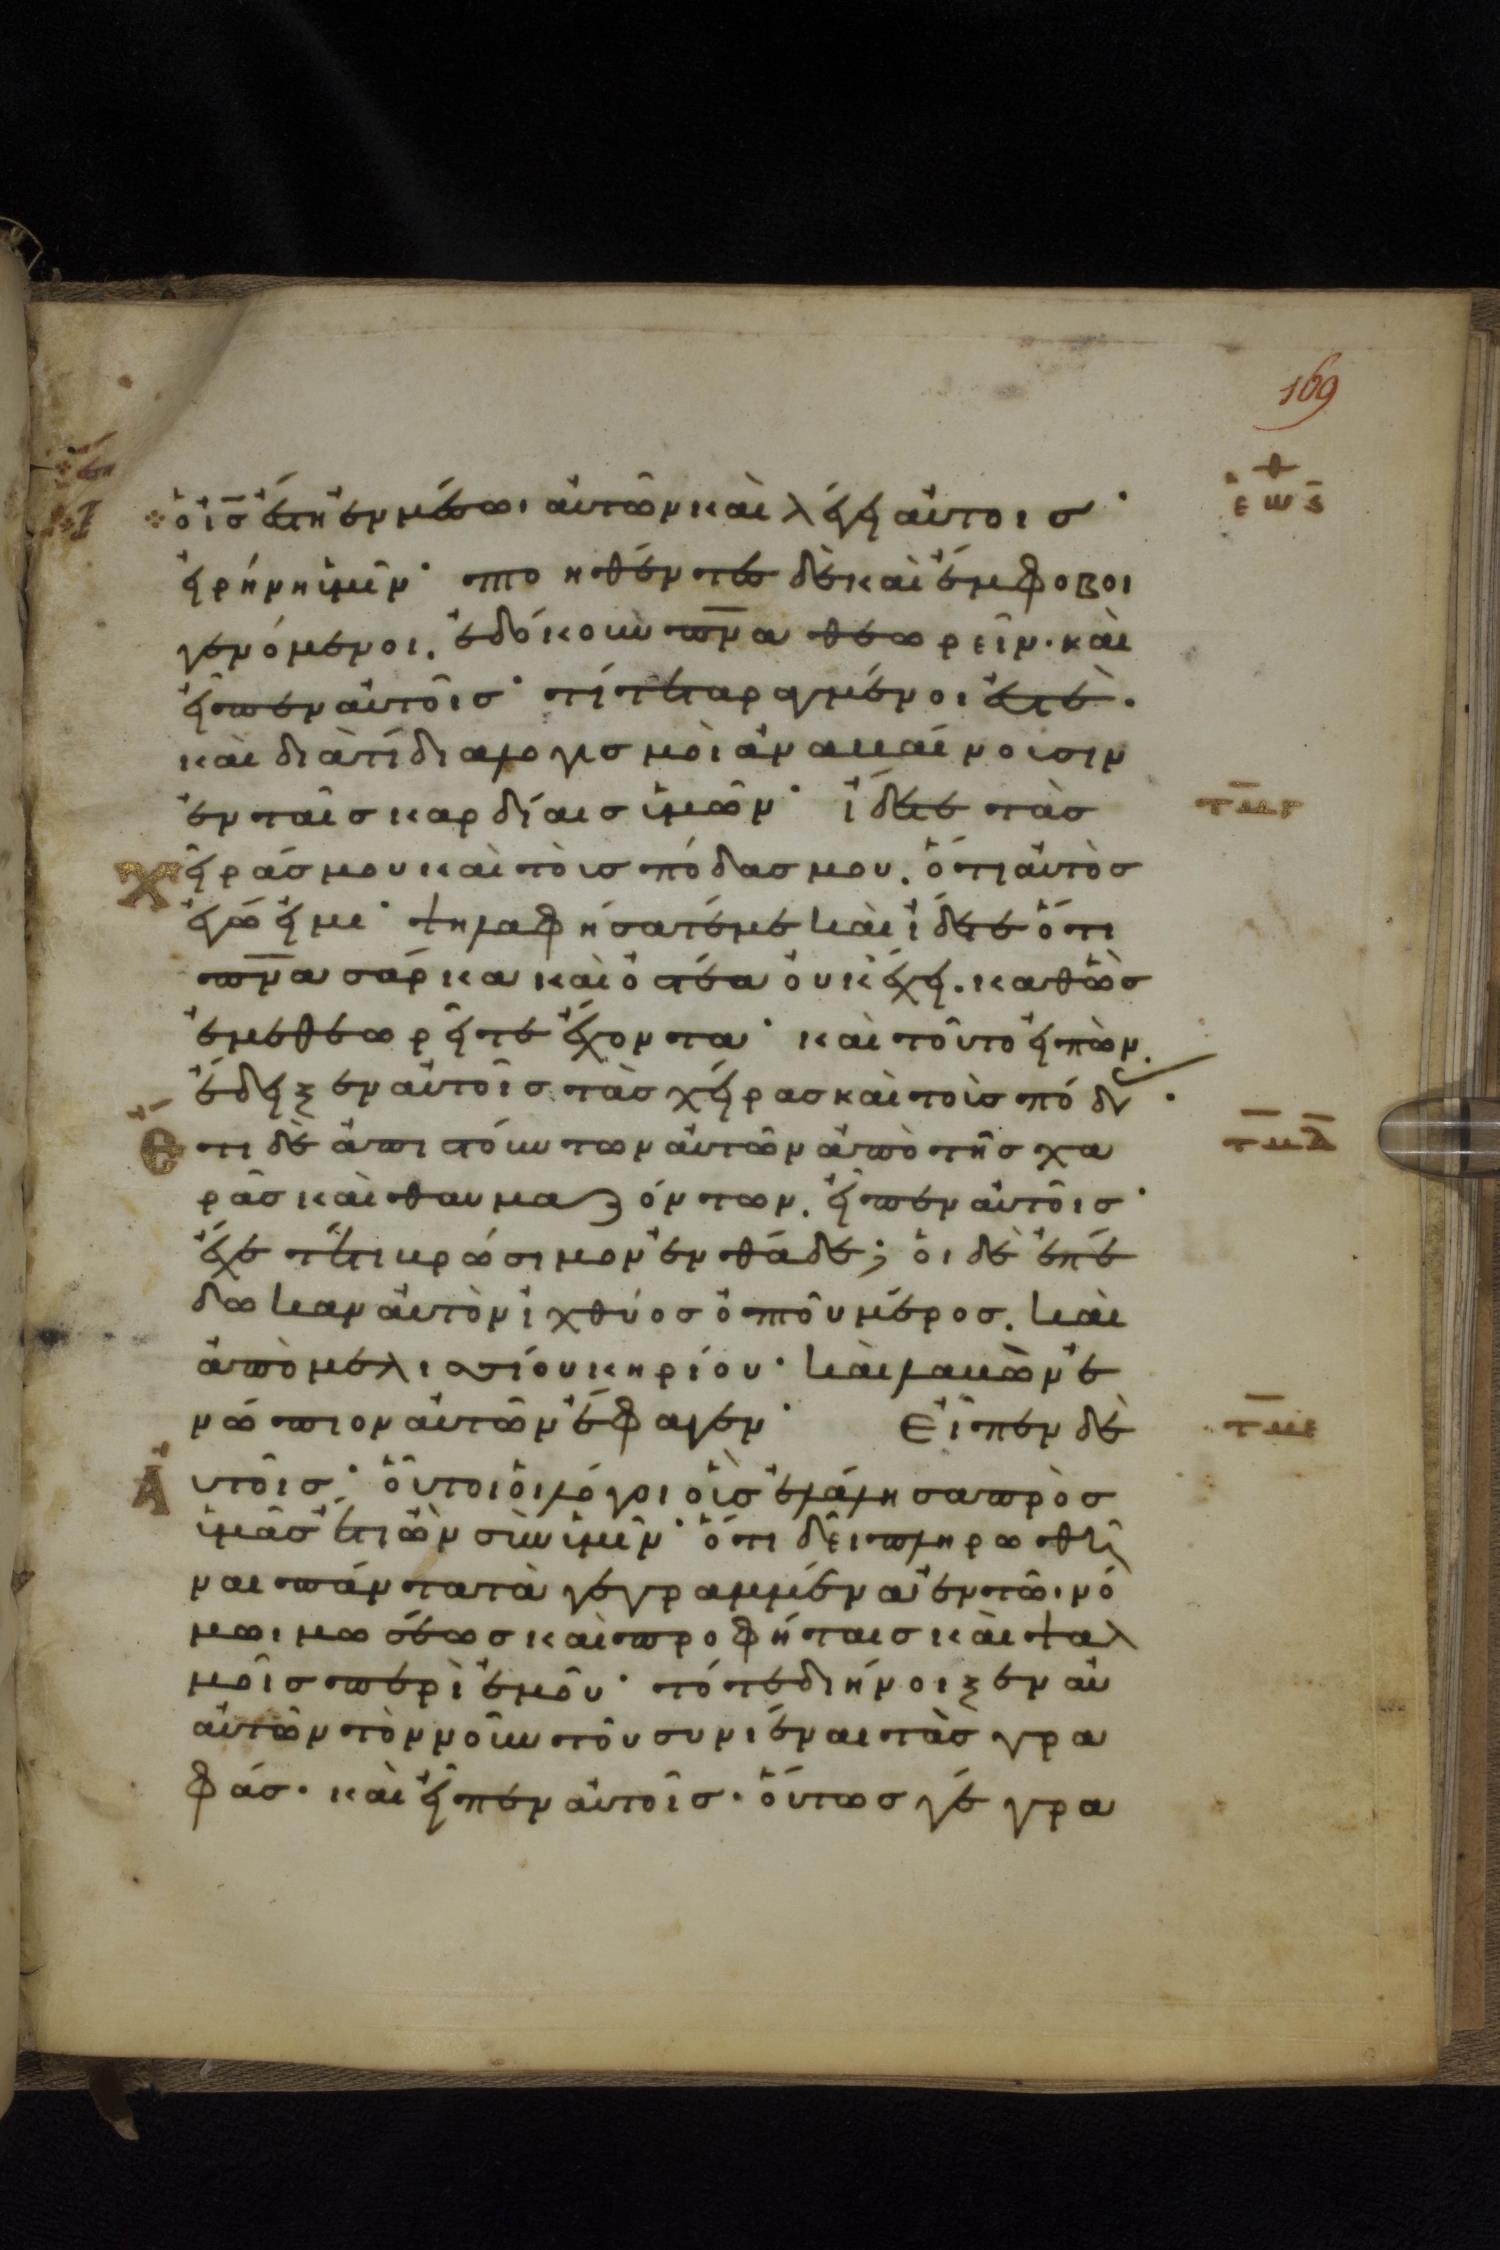 169
ὁ ι̅σ̅ ἔστη ἐν μέσωι αὐτῶν καὶ λέγει αὐτοισ·
εἰρήνη ὑμῖν· πτοηθέντεσ δὲ καὶ ἔμφοβοι
γενόμενοι. ἐδόκουν π̅ν̅α θεωρεῖν· καὶ
εἶπεν αὐτοῖσ· τί τεταραγμένοι ἐστέ.
καὶ διὰ τί διαλογισμοὶ ἀναβαίνουσιν
ἐν ταῖσ καρδίαισ ὑμῶν· ἴδετε τὰσ
τ̅μ̅γ̅
χεῖράσ μου καὶ τοὺσ πόδασ μου. ὅτι αὐτὸσ
ἐγώ εἰμι· ψηλαφήσατέ με καὶ ἴδετε ὅτι
π̅ν̅α σάρκα καὶ ὀστέα οὐκ ἔχει. καθὼσ
ἐμὲ θεωρεῖτε ἔχοντα· καὶ τοῦτο εἰπὼν.
ἔδειξεν αὐτοῖσ τὰσ χεῖρασ καὶ τοὺσ πόδ
Ἔτι δὲ ἀπιστούντων αὐτῶν ἀπὸ τῆσ χα
τ̅μ̅δ̅
ρᾶσ καὶ θαυμαζόντων. εἶπεν αὐτοῖσ·
ἔχετέ τι βρώσιμον ἐνθάδε; οἱ δὲ ἐπέ
δωκαν αὐτὸν ἰχθύοσ ὀπτοῦ μέροσ. καὶ
ἀπὸ μελισσίου κηρίου· καὶ λαβὼν ἐ
νώπιον αὐτῶν ἔφαγεν· Εἶπεν δὲ
τ̅μ̅ε̅
Αὐτοῖσ· οὗτοι οἱ λόγοι οὓσ ἐλάλησα πρὸσ
ὑμᾶσ ἔτι ὢν σὺν ὑμῖν· ὅτι δεῖ πληρωθῆ
ναι πάντα τὰ γεγραμμένα ἐν τῶι νό
μωι μωσέωσ καὶ προφήταισ καὶ ψαλ
μοῖσ περὶ ἐμοῦ· τότε διήνοιξεν αὐ
αὐτῶν τὸν νοῦν τοῦ συνιέναι τὰσ γρα
φάσ· καὶ εἶπεν αὐτοῖσ· οὕτωσ γέγρα